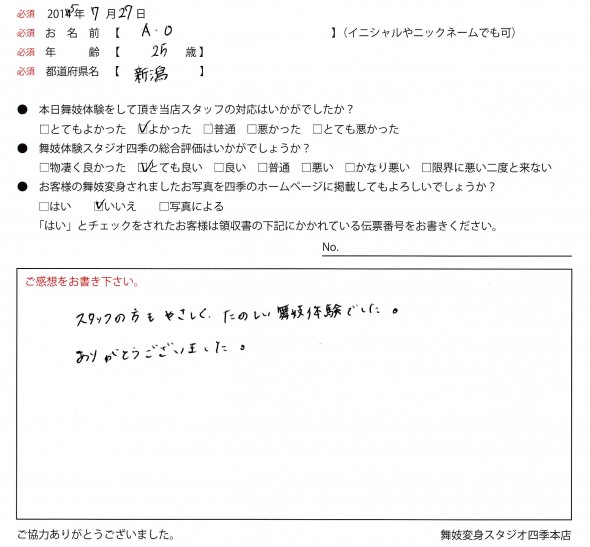 必須 2015年 7月27日
必須 お名前【 A・O 】(イニシャルやニックネームでも可)
必須 年齢【 25 歳】
必須 都道府県名【 新潟 】
● 本日舞妓体験をして頂き当店スタッフの対応はいかがでしたか?
□とてもよかった ☑よかった □普通 □悪かった □とても悪かった
● 舞妓体験スタジオ四季の総合評価はいかがでしょうか?
□物凄く良かった ☑とても良い □良い □普通 □悪い □かなり悪い □限界に悪い二度と来ない
● お客様の舞妓変身されましたお写真を四季のホームページに掲載してもよろしいでしょうか?
□はい ☑いいえ □写真による
「はい」とチェックをされたお客様は領収書の下記にかかれている伝票番号をお書きください。
No.
ご感想をお書き下さい。
スタッフの方もやさしく、たのしい舞妓体験でした。
ありがとうございました。
ご協力ありがとうございました。 舞妓変身スタジオ四季本店